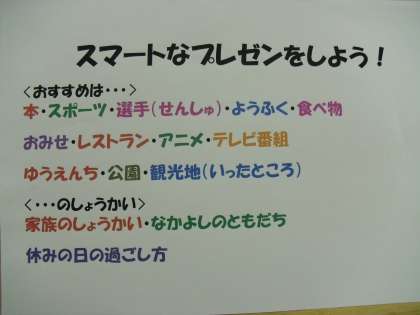 スマートなプレゼンをしよう！
<おすすめは・・・>
本・スポーツ・選手(せんしゅ)・ようふく・食べ物
おみせ・レストラン・アニメ・テレビ番組
ゆうえんち・公園・観光地(いったところ)
<・・・のしょうかい>
家族のしょうかい・なかよしのともだち
休みの日の過ごし方